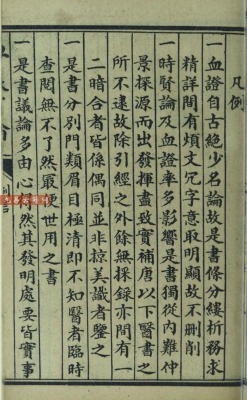 凡例
一血證自古絶少名論故是書條分縷析務求
精詳間有煩文冗字意取明顯故不刪削
一時賢論及血證率多影響是書獨從內難仲
景探源而出發揮盡致實補唐以下醫書之
所不逮故除引經之外餘無採録亦間有一
二暗合者皆係偶同並非掠美識者鑒之
一是書分別門類眉目極清即不知醫者臨時
查閲無不了然最便世用之書
一是書議論多由心得然其發明處要皆實事